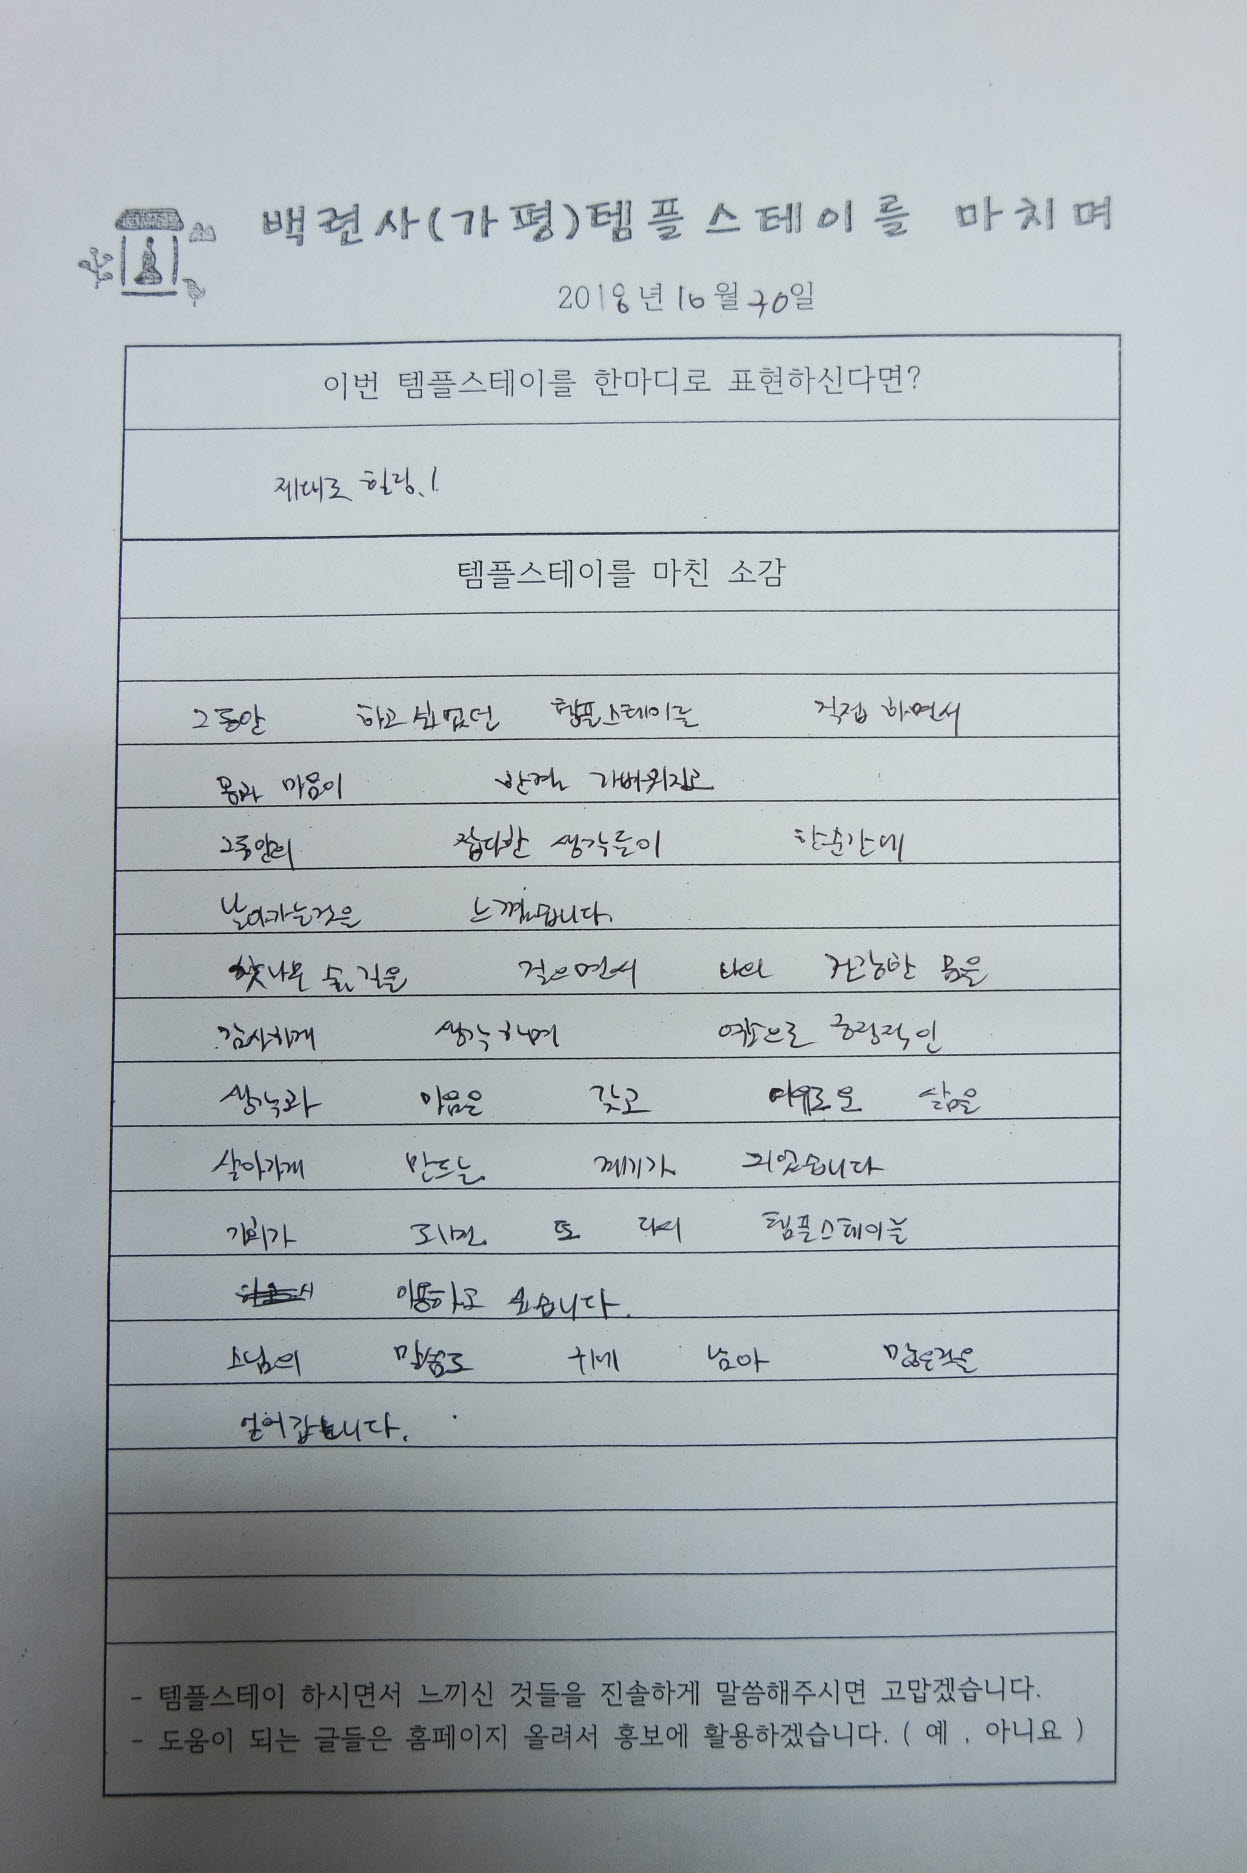 백련사(가평)템플스테이를 마치며
2018년 10월 30일
이번 템플스테이를 한마디로 표현하신다면?
제대로 힐링!
템플스테이를 마친 소감
그동안 하고싶었던 템플스테이를 직접 하면서
몸과 마음이 한결 가벼워지고
그동안의 잡다한 생각들이 한순간에
날아가는것을 느낍니다.
잣나무 숲길을 걸으면서 나의 건강한 몸을
감사하게 생각하며 앞으로 긍정적인
생각과 마음을 갖고 여유로운 삶을
살아가게 만드는 계기가 되었습니다
기회가 되면 또 다시 템플스테이를
이용하고 싶습니다.
스님의 말씀도 귀에 남아 많은것을
얻어갑니다.
- 템플스테이 하시면서 느끼신 것들을 진솔하게 말씀해주시면 고맙겠습니다.
- 도움이 되는 글들은 홈페이지 올려서 홍보에 활용하겠습니다. ( 예 , 아니요 )